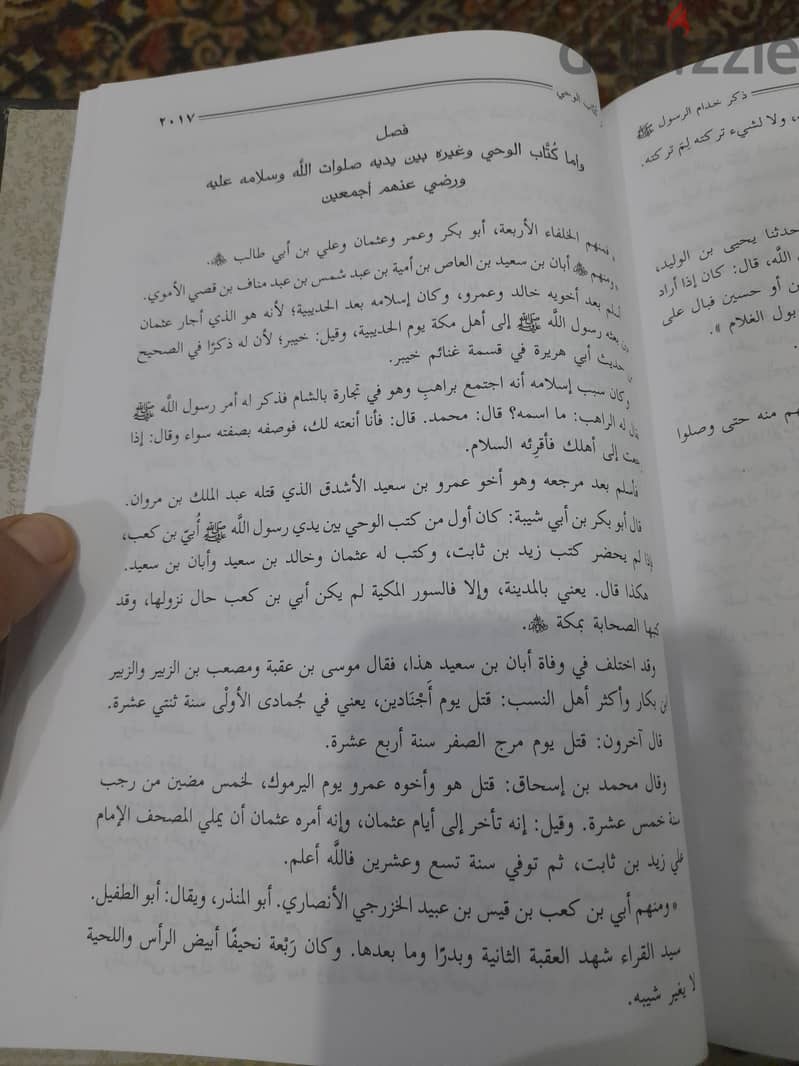 dubizzle
٢٠١٧
كتاب الوحي
فصل
وأما كُتَّاب الوحي وغيره بين يديه صلوات اللَّه وسلامه عليه
ورضي عنهم أجمعين
• فمنهم الخلفاء الأربعة، أبو بكر وعمر وعثمان وعلي بن أبي طالب ﷺ.
• ومنهم ﷺ أبان بن سعيد بن العاص بن أمية بن عبد شمس بن عبد مناف بن قصي الأموي.
أسلم بعد أخويه خالد وعمرو، وكان إسلامه بعد الحديبية؛ لأنه هو الذي أجار عثمان
بعثه رسول اللَّه ﷺ إلى أهل مكة يوم الحديبية، وقيل: خيبر؛ لأن له ذكرًا في الصحيح
حديث أبي هريرة في قسمة غنائم خيبر.
وكان سبب إسلامه أنه اجتمع براهبٍ وهو في تجارة بالشام فذكر له أمر رسول اللَّه ﷺ
له الراهب: ما اسمه؟ قال: محمد. قال: فأنا أنعته لك، فوصفه بصفته سواء وقال: إذا
إلى أهلك فأقرِئه السلام.
فأسلم بعد مرجعه وهو أخو عمرو بن سعيد الأشدق الذي قتله عبد الملك بن مروان.
قال أبو بكر بن أبي شيبة: كان أول من كتب الوحي بين يدي رسول اللَّه ﷺ أُبيّ بن كعب،
فإذا لم يحضر كتب زيد بن ثابت، وكتب له عثمان وخالد بن سعيد وأبان بن سعيد.
هكذا قال. يعني بالمدينة، وإلا فالسور المكية لم يكن أبي بن كعب حال نزولها، وقد
كتبها الصحابة بمكة ﷺ.
وقد اختلف في وفاة أبان بن سعيد هذا، فقال موسى بن عقبة ومصعب بن الزبير والزبير
ابن بكار وأكثر أهل النسب: قتل يوم أَجْنَادين، يعني في جُمادى الأولْى سنة ثنتي عشرة.
قال آخرون: قتل يوم مرج الصفر سنة أربع عشرة.
وقال محمد بن إسحاق: قتل هو وأخوه عمرو يوم اليرموك، لخمس مضين من رجب
سنة خمس عشرة. وقيل: إنه تأخر إلى أيام عثمان، وإنه أمره عثمان أن يملي المصحف الإمام
على زيد بن ثابت، ثم توفي سنة تسع وعشرين فاللَّه أعلم.
• ومنهم أبي بن كعب بن قيس بن عبيد الخزرجي الأنصاري. أبو المنذر، ويقال: أبو الطفيل.
سيد القراء شهد العقبة الثانية وبدرًا وما بعدها. وكان رَبْعة نحيفًا أبيض الرأس واللحية
لا يغير شيبه.
ذكر خدام الرسول ﷺ
، ولا لشيء تركته لِمَ تركته.
حدثنا يحيى بن الوليد،
اللَّه، قال: كان إذا أراد
أو حسين فبال على
بول الغلام ».
منه حتى وصلوا